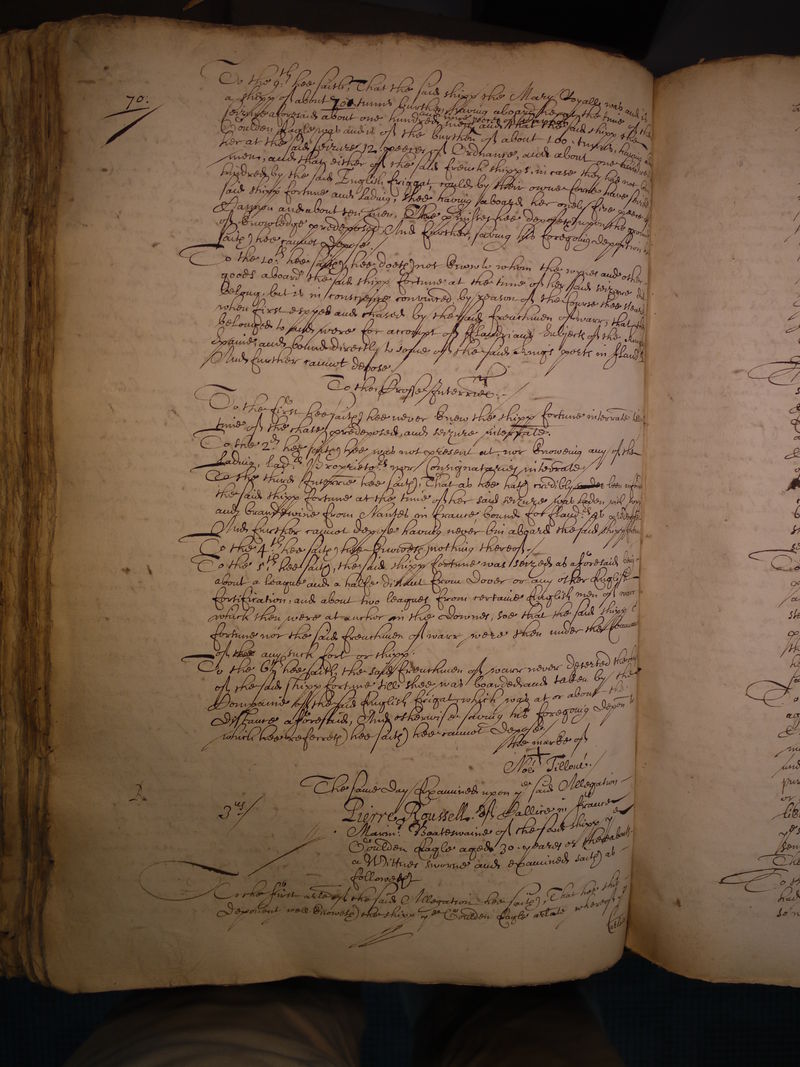 To the 9.th hee saith, That the said shipp the Mary Royall was and is
70.
a shipp of about 700 tunns burthen having aboard her at the time of the
seizure aforesaid about one hundred men, and that the said shipp the
Goulden Eagle was and is of the burthen of about 100. tunns, having
her at the said seizure 12. peeces of Ordnance, and about one hundred
men, and that either of the said french shipps, in case they had not bin
hindred by the said English friggat, could by their owne force have
said shipp fortune and lading, shee having aboard her onely five peeces
and about ten men, The premisses hee deposeth upon the grounds
of knowledge predeposed, And further saving his foregoing deposition
saith hee cannot depose./
To the 10.th hee saith hee doeth not know whom the wynes and other
goods aboard the said shipp fortune at the time of her said seizure did
belong, but is in conscience convinced by reason of the course shee steered
when first espyed and chased by the said frenchmen of warr, that they
belonged to and were for accompt of Flandrians subjects of the King of
Spaine and bound directly to some of the said Kings ports in Flanders
And further cannot depose.
To the Crosse Interries./
To the first hee saith hee never knew the shipp fortune interrate before
time of the chase predeposed, and seizure interrate.
To the 2.d hee saith hee was not present at, nor knoweing any of the
Lading, Proprietors nor Consignataries interrate
To the third Interrie hee saith, That as hee hath credibly bin informed
the said shipp fortune at the time of her said seizure was laden with
and brandwine from Nantes in france bound for fland.rs As predeposed
And further cannot depose having never bin aboard the said shipp
To the 4.th hee saith hee knoweth nothing thereof./
To the 5.th hee saith, the said shipp fortune was seized as aforesaid being
about a league and a halfe distant from Dover or any other English
fortification, and about two leagues from certaine English men of warr
which then were at anchor in the Downes, soe that the said shipp
fortune nor the said frenchmen of warr were then under the
of any such fort or shipp.
To the 6.th hee saith, the said frenchmen of warr never deserted the
of the said shipp fortune till shee was boarded and taken by the
Companie of the said English frigat, which was at or about the
distance aforesaid, And otherwise saving his foregoing deposition to
which hee referreth hee saith hee cannot depose.
the marke of
Tillou./
The same day Examined upon ye said Allegation
3us/
Pierre Roussell of in france
Marin.r Boateswaine of the said shipp ye
Goulden Eagle aged 30. yeares or thereabouts
a Wittnes sworne and examined saith as
followeth
To the first arle of the said Allegation hee saith, That hee this
deponent well knoweth the shipp ye Goulden Eagle arlate whereof